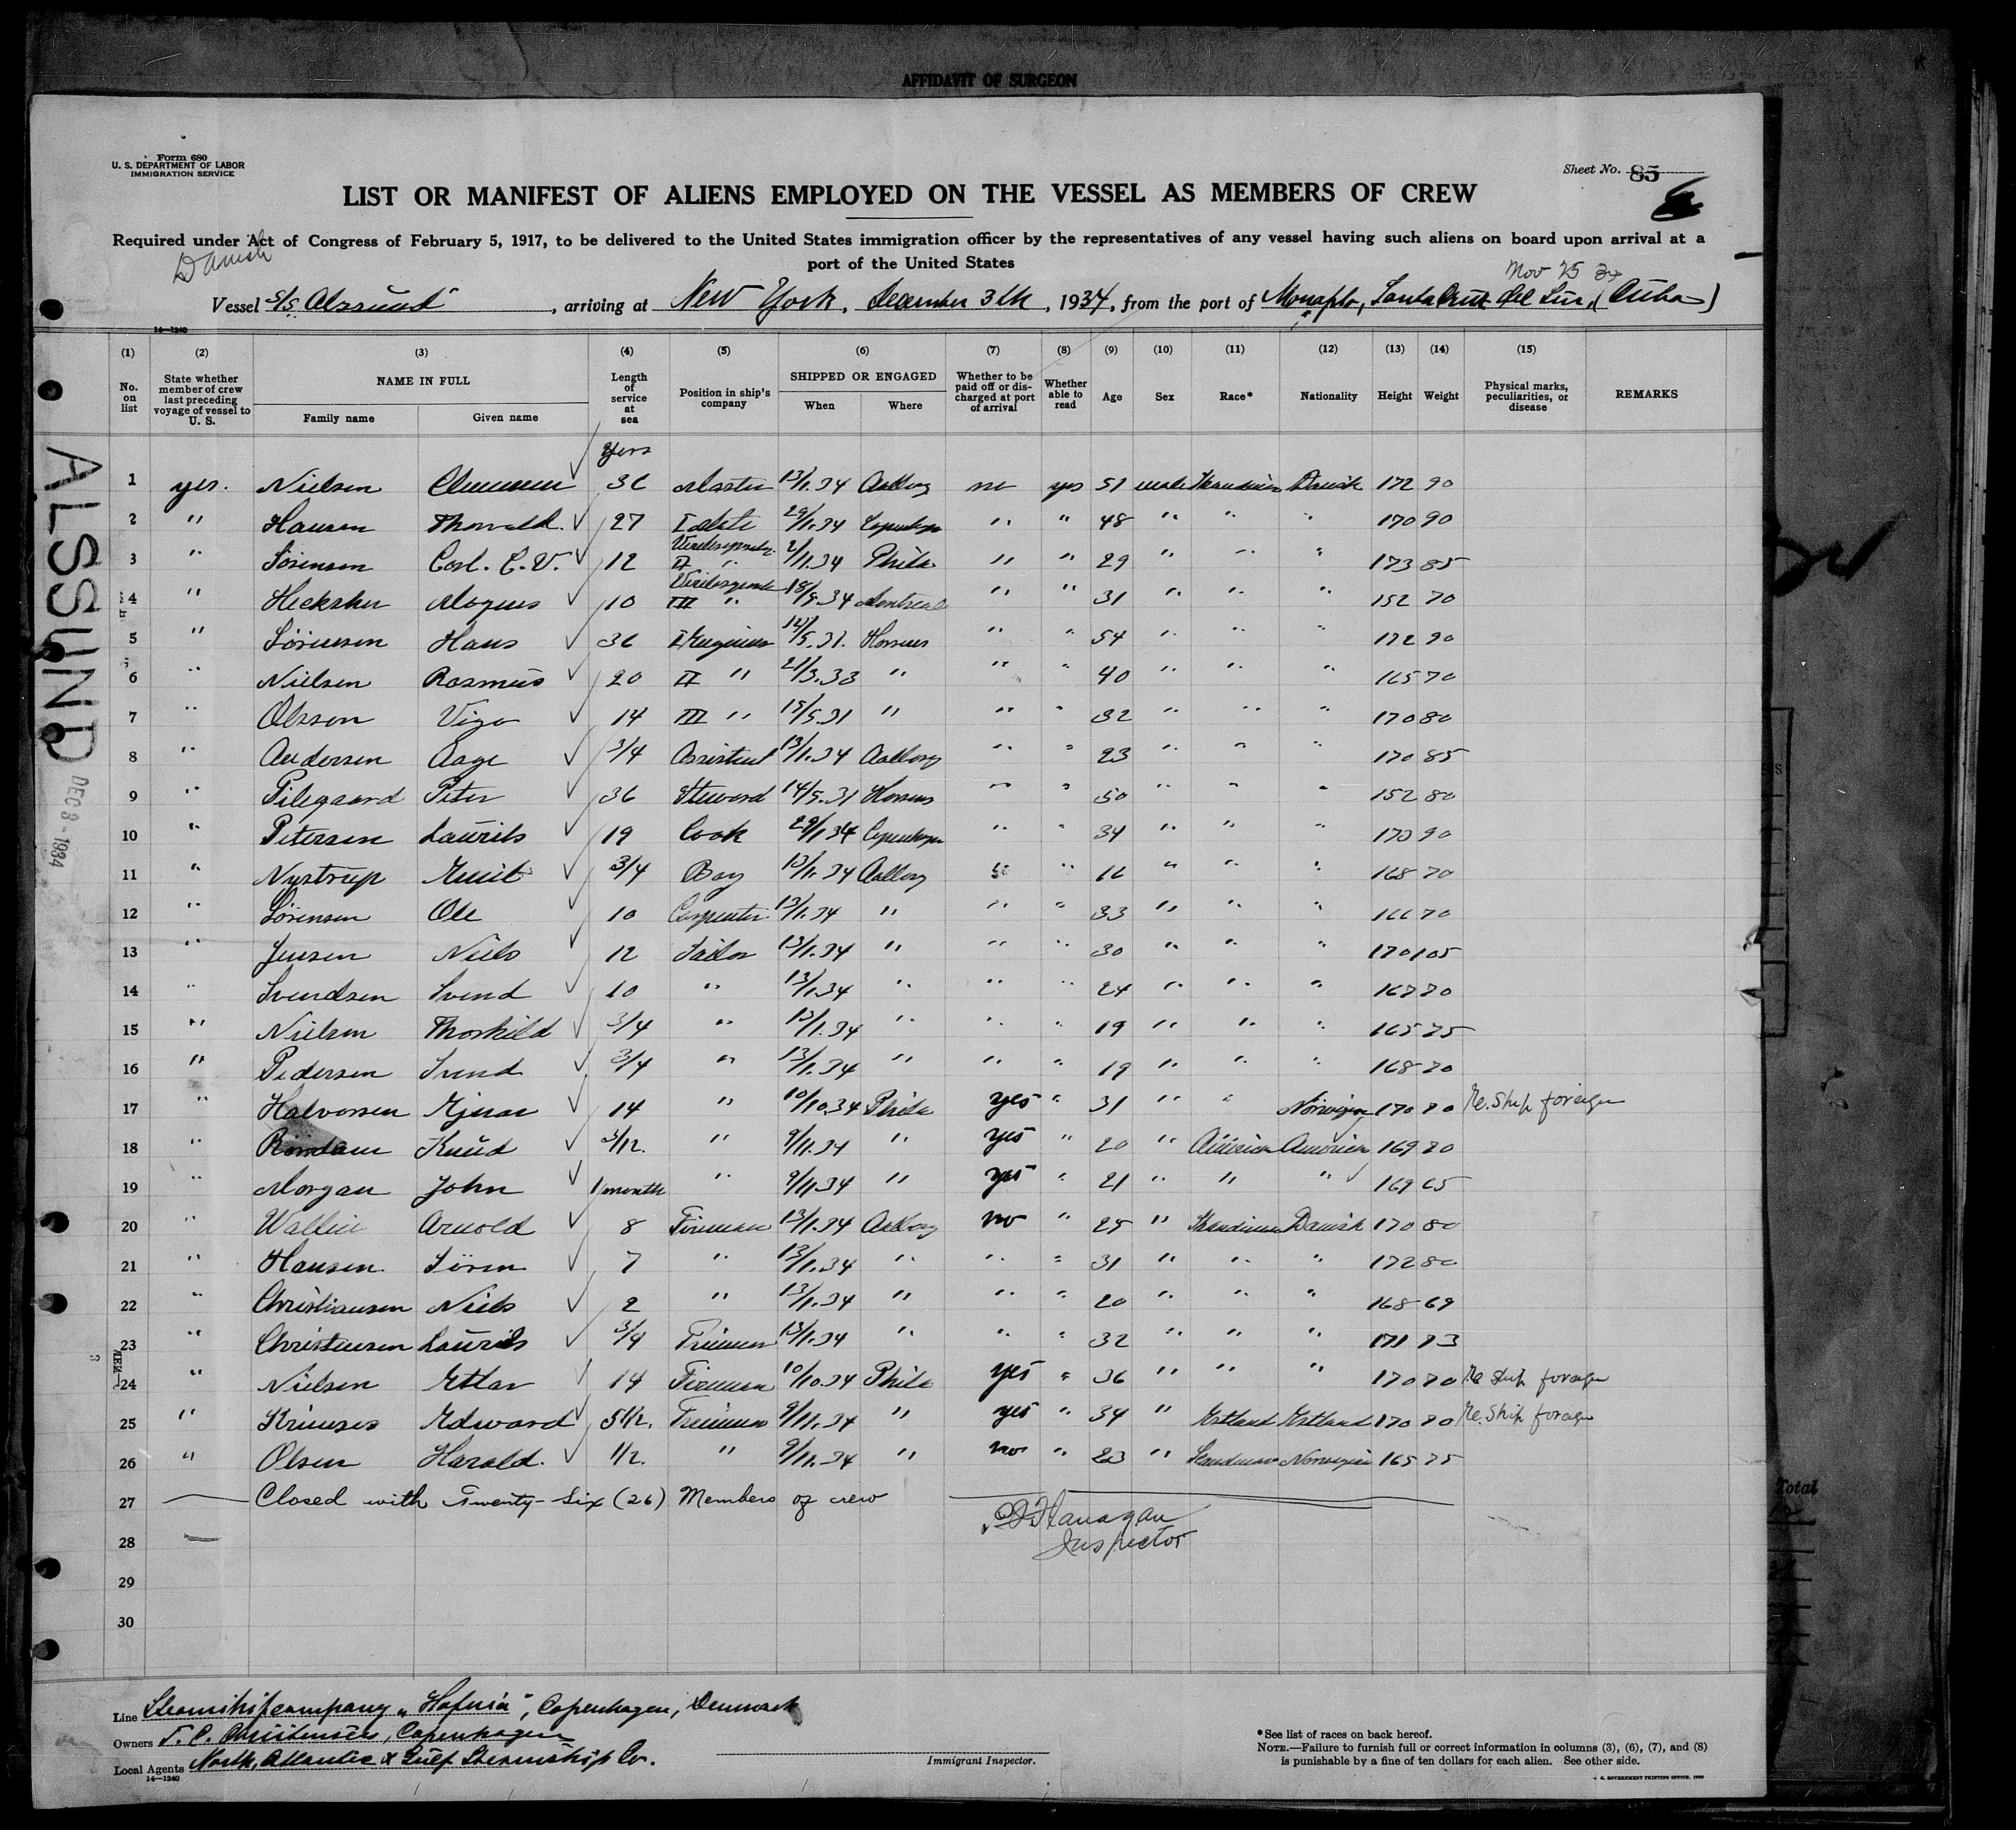 AFFIDAVIT OF SURGEON
Form 680
U. S. DEPARTMENT OF LABOR
IMMIGRATION SERVICE
Sheet No. 85
6
LIST OR MANIFEST OF ALIENS EMPLOYED ON THE VESSEL AS MEMBERS OF CREW
Required under Act of Congress of February 5, 1917, to be delivered to the United States immigration officer by the representatives of any vessel having such aliens on board upon arrival at a
port of the United States
Danish
Nov 25 34
Vessel S/S. Alssund, arriving at New York, December 3th, 1934, from the port of Manaplo, Santa Cruz del Sur, (Cuba)
14—1240
(1) (2) (3) (4) (5) (6) (7) (8) (9) (10) (11) (12) (13) (14) (15)
No. on list
State whether member of crew last preceding voyage of vessel to U. S.
NAME IN FULL
Family name
Given name
Length of service at sea
Position in ship's company
SHIPPED OR ENGAGED
When
Where
Whether to be paid off or discharged at port of arrival
Whether able to read
Age
Sex
Race*
Nationality
Height
Weight
Physical marks, peculiarities, or disease
REMARKS
ALSSUND
DEC 3 - 1934
Yers
1 yes. Nielsen 36 Master 13/1.34 Aalborg no yes 51 male Skandinav Danish 172 90
2 " Hansen Thorvald. 27 I Mate 29/1.34 Copenhagen " " 48 " " " 170 90
3 " Sörensen Carl. C. V. 12 II " 2/11.34 Phila " " 29 " " " 173 85
4 " Hecksher Mogens 10 III " 18/9.34 Montreal " " 31 " " " 152 70
5 " Sörensen Hans 36 I Engineer 12/5.31. Horsens " " 54 " " 172 90
6 " Nielsen Rasmus 20 II " 21/3.33 " " " 40 " " " 165 70
7 " Olsson Vigo 14 III " 15/5.31 " " " 32 " " " 170 80
8 " Andersen Aage 3/4 Assistent 13/1.34 Aalborg " " 23 " " " 170 85
9 " Pilegaard Peter 36 Steward 14/5.31 Horsens " " 50 " " " 152 80
10 " Petersen Laurits 19 Cook 29/1.34 Copenhagen " " 34 " " " 170 90
11 " Nystrup Emil 3/4 Boy 13/1.34 Aalborg " " 16 " " " 168 70
12 " Sörensen Ole 10 Carpenter 13/1.34 " " " 33 " " " 166 70
13 " Jensen Niels 12 Sailor 13/1.34 " " " 30 " " " 170 105
14 " Svendsen Svend 10 " 13/1.34 " " " 24 " " " 167 70
15 " Nielsen Thorkild 3/4 " 13/1.34 " " " 19 " " " 165 75
16 " Pedersen Svend 3/4 " 13/1.34 " " " 19 " " " 168 70
17 " Halvorsen Ejnar 14 " 10/10.34 Phila yes " 31 " " Norwegian 170 70 Re. Ship foreign
18 " Knud 3/12. " 9/11.34 " yes " 20 " American American 169 70
19 " Morgan John 1 month " 9/11.34 " yes " 21 " " " 169 65
20 " Wallin Arnold 8 Fireman 13/1.34 Aalborg no " 25 " Skandinav Danish 170 80
21 " Hansen Sören 7 " 13/1.34 " " " 31 " " " 172 80
22 " Christiansen Niels 2 " 13/1.34 " " " 20 " " " 168 69
23 " Christensen Laurids 3/4 Trimmer 13/1.34 " " " 32 " " " 171 73
24 " Nielsen Ettar 14 Fireman 10/10.34 Phila yes " 36 " " " 170 70 Re Ship foreign
25 " Edward 5 1/2. Trimmer 9/11.34 " yes " 34 " Estland Estland 170 70 Re. Ship foreign
26 " Olsen Harald. 1/2. " 9/11.34 " no " 23 " Skandinav Norwegian 165 75
27 Closed with Twenty-Six (26) Members of crew
Flanagan
Inspector
28
29
30
Line Steamshipcompany "Hafnia", Copenhagen, Denmark
Owners T. C. Christensen, Copenhagen
Local Agents North Atlantic & Gulf Steamship Co.
14—1240
Immigrant Inspector.
*See list of races on back hereof.
NOTE.—Failure to furnish full or correct information in columns (3), (6), (7), and (8)
is punishable by a fine of ten dollars for each alien. See other side.
U. S. GOVERNMENT PRINTING OFFICE
Total